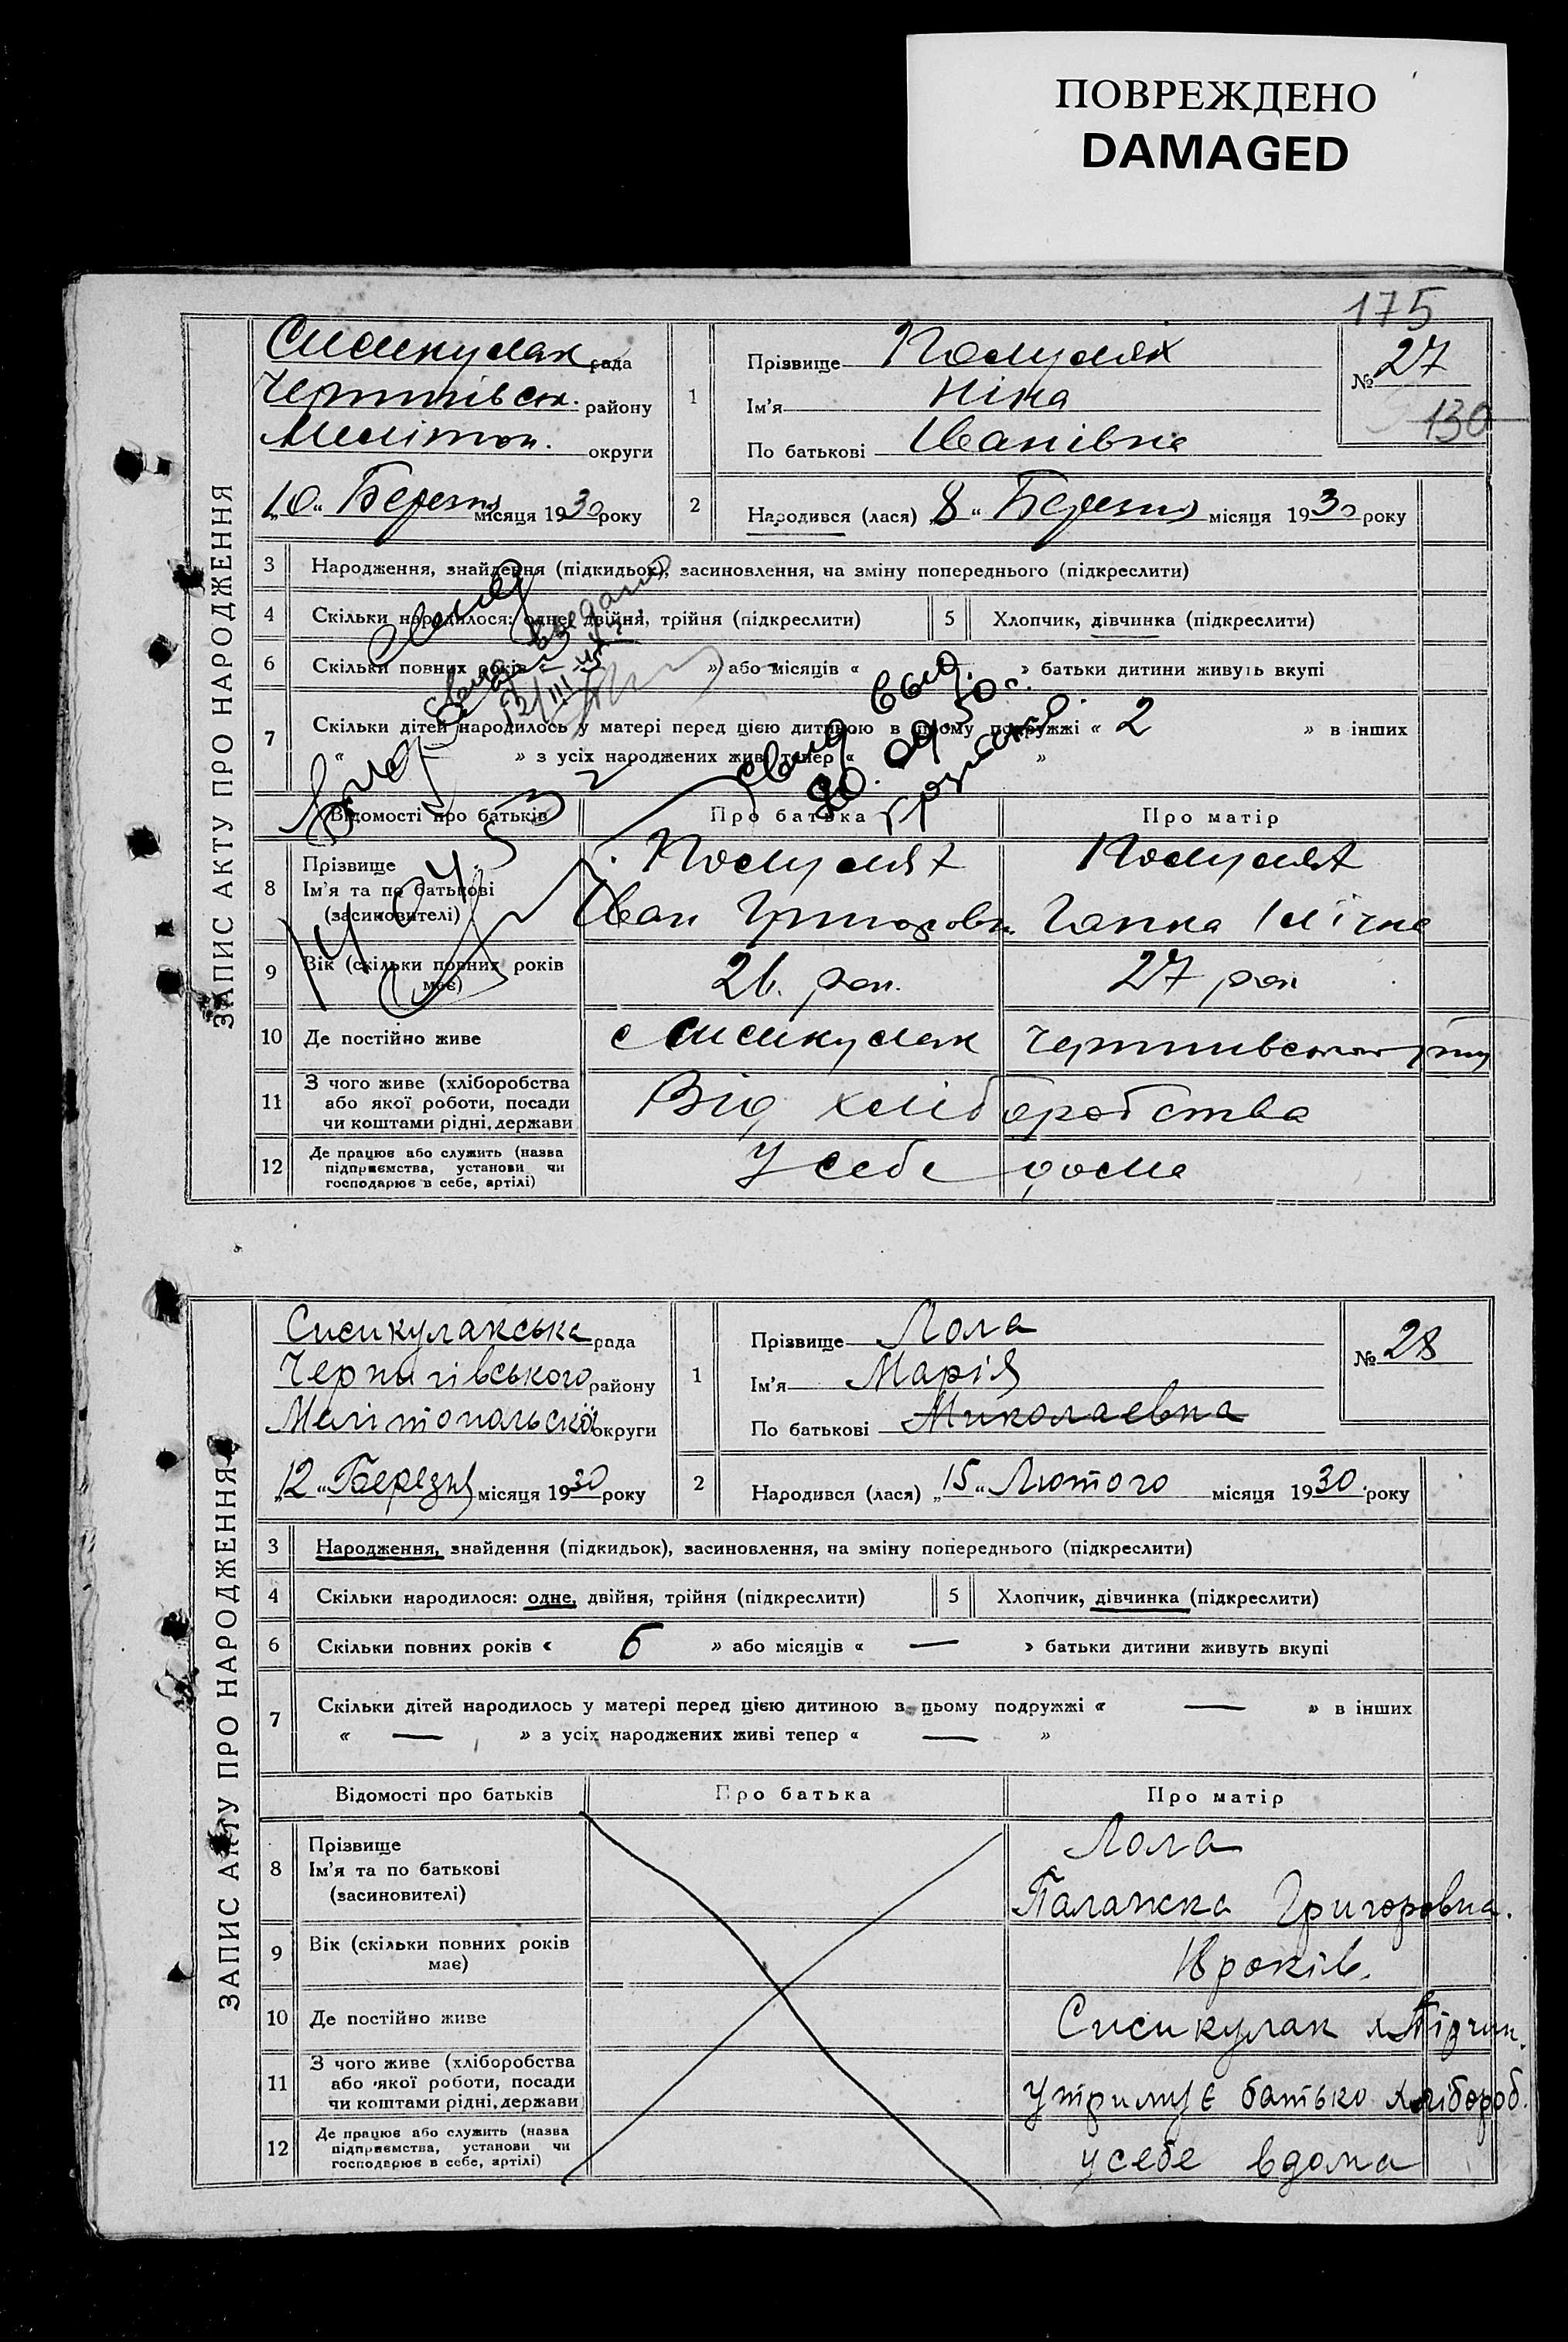 ПОВРЕЖДЕНО
DAMAGED
175
ЗАПИС АКТУ ПРО НАРОДЖЕННЯ
Сисикулак рада
Чернигівськ. району
Мелітоп. округи
„10“ Березня місяця 1930 року
1
Прізвище
Ім'я Ніна
По батькові Іванівна
№ 27
130
2
Народився (лася) „8“ Березня місяця 1930 року
3 Народження, знайдення (підкидьок), засиновлення, на зміну попереднього (підкреслити)
4 Скільки народилося: одне, двійня, трійня (підкреслити)
5 Хлопчик, дівчинка (підкреслити)
6 Скільки повних років « » або місяців « » батьки дитини живуть вкупі
7 Скільки дітей народилось у матері перед цією дитиною в цьому подружжі « 2 » в інших
« » з усіх народжених живі тепер « »
Відомості про батьків Про батька Про матір
8 Прізвище
Ім'я та по батькові
(засиновителі)
Іван Григоров. Ганна Ілічна
9 Вік (скільки повних років має) 26. рок. 27 рок
10 Де постійно живе с Сисикулак
11 З чого живе (хліборобства
або якої роботи, посади
чи коштами рідні, держави
Від хліборобства
12 Де працює або служить (назва
підприємства, установи чи
господарює в себе, артілі)
У себе дома
свид выд.
20. 09. 50 г.
ЗАПИС АКТУ ПРО НАРОДЖЕННЯ
Сисикулакська рада
Чернигівського району
Мелітопольскої округи
„12“ Березня місяця 1930 року
1
Прізвище Лола
Ім'я Марія
По батькові Миколаевна
№ 28
2
Народився (лася) „15“ Лютого місяця 1930 року
3 Народження, знайдення (підкидьок), засиновлення, на зміну попереднього (підкреслити)
4 Скільки народилося: одне, двійня, трійня (підкреслити)
5 Хлопчик, дівчинка (підкреслити)
6 Скільки повних років « б » або місяців « — » батьки дитини живуть вкупі
7 Скільки дітей народилось у матері перед цією дитиною в цьому подружжі « — » в інших
« — » з усіх народжених живі тепер « — »
Відомості про батьків Про батька Про матір
8 Прізвище
Ім'я та по батькові
(засиновителі)
Лола
Палажка Григоровна.
9 Вік (скільки повних років має) 18 років.
10 Де постійно живе Сисикулак
11 З чого живе (хліборобства
або якої роботи, посади
чи коштами рідні, держави
утримує батько хлібороб.
12 Де працює або служить (назва
підприємства, установи чи
господарює в себе, артілі)
у себе вдома